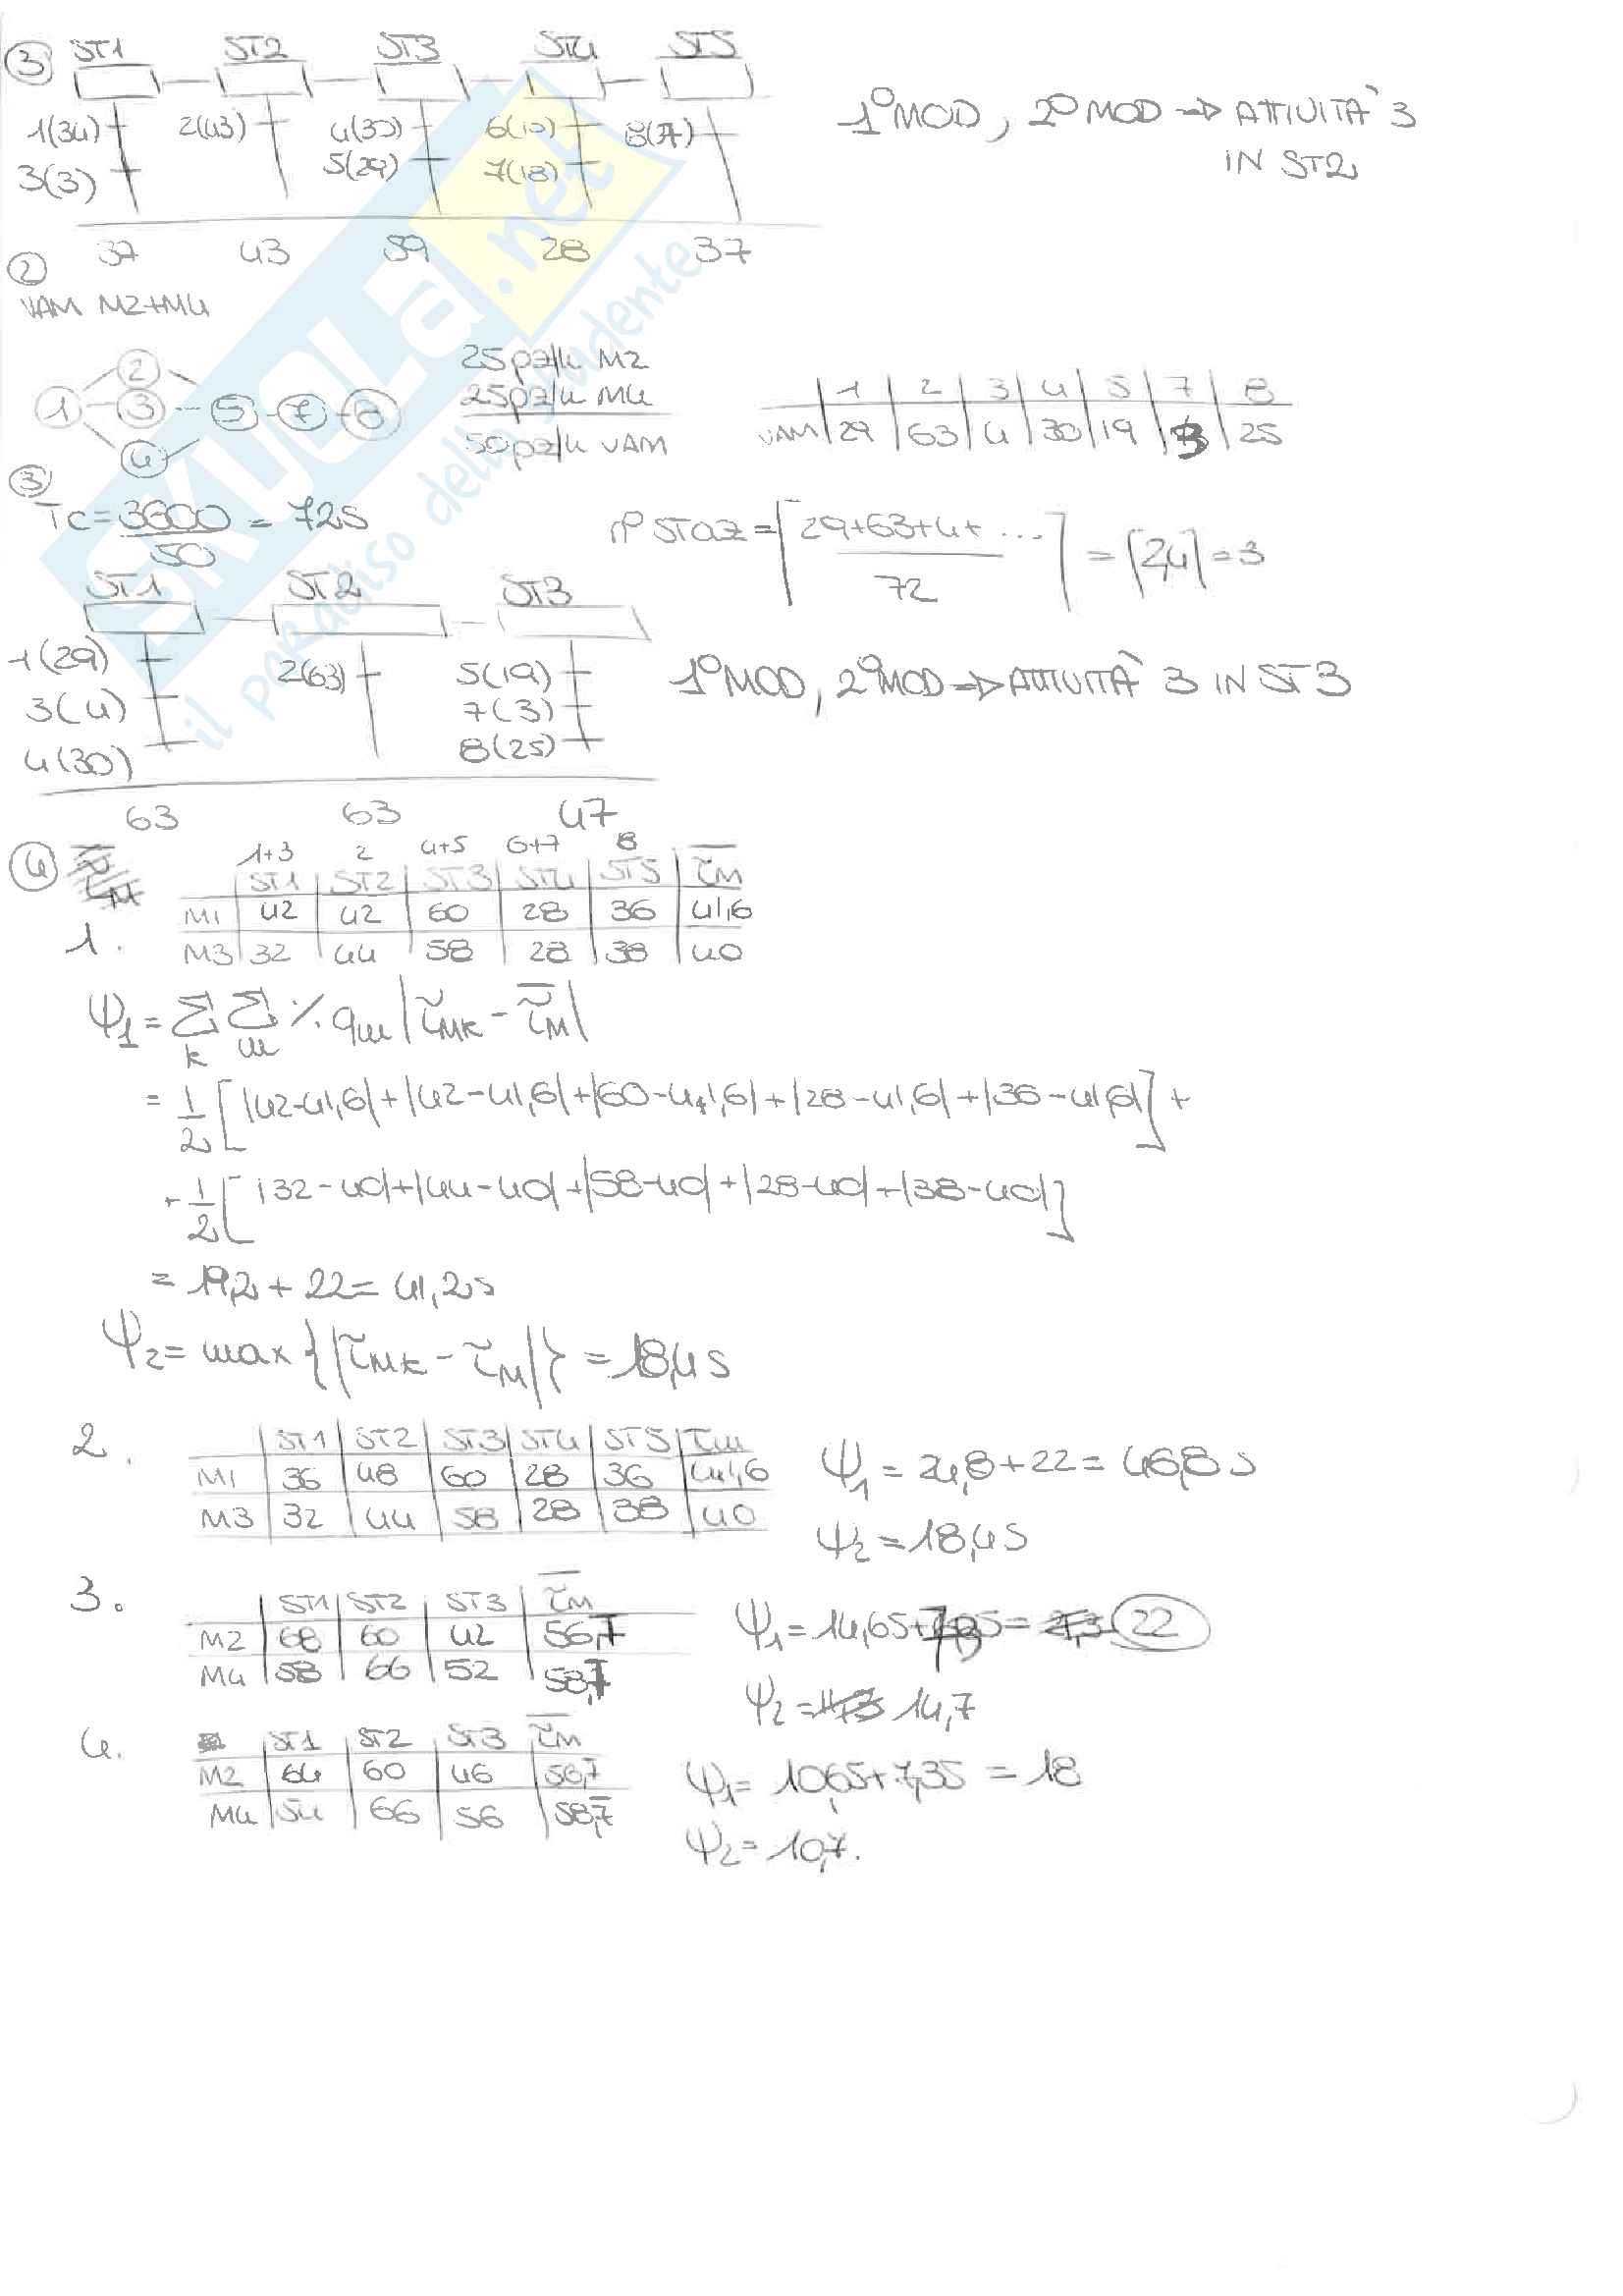 ③ ST1 ST2 ST3 ST4 ST5
1(34) 2(43) 4(30) 6(10) 8(37)
3(3) 5(29) 7(18)
1° MOD, 2° MOD => ATTIVITÀ 3
IN ST2
37 43 59 28 37
②
VAM M2+M4
1 2 3 4 5 7 8
25pz/h M2
25pz/h M4
50pz/h VAM
1 2 3 4 5 7 8
VAM 29 63 4 30 19 3 25
③
Tc = 3600/50 = 72s
n° STAZ = ⌈(29+63+4+...)/72⌉ = ⌈2,4⌉ = 3
ST1 ST2 ST3
1(29) 2(63) 5(19)
3(4) 7(3)
4(30) 8(25)
1° MOD, 2° MOD => ATTIVITÀ 3 IN ST3
63 63 47
④
1+3 2 4+5 6+7 8
ST1 ST2 ST3 ST4 ST5 τ̄M
1. M1 42 42 60 28 36 41,6
M3 32 44 58 28 38 40
Ψ1 = Σk Σm % qm |τ̃Mk - τ̄M|
= 1/2 [|42-41,6|+|42-41,6|+|60-41,6|+|28-41,6|+|36-41,6|] +
+ 1/2 [|32-40|+|44-40|+|58-40|+|28-40|+|38-40|]
= 19,2 + 22 = 41,2s
Ψ2 = max{|τ̃Mk - τ̃M|} = 18,4s
2. ST1 ST2 ST3 ST4 ST5 τ̄m
M1 36 48 60 28 36 41,6
M3 32 44 58 28 38 40
Ψ1 = 24,8+22 = 46,8s
Ψ2 = 18,4s
3. ST1 ST2 ST3 τ̄M
M2 68 60 42 56,7
M4 58 66 52 58,7
Ψ1 = 14,65+ = 22
Ψ2 = 14,7
4. ST1 ST2 ST3 τ̄M
M2 64 60 46 56,7
M4 54 66 56 58,7
Ψ1 = 10,65+7,35 = 18
Ψ2 = 10,7.
SKUOLA.net
il paradiso dello studente